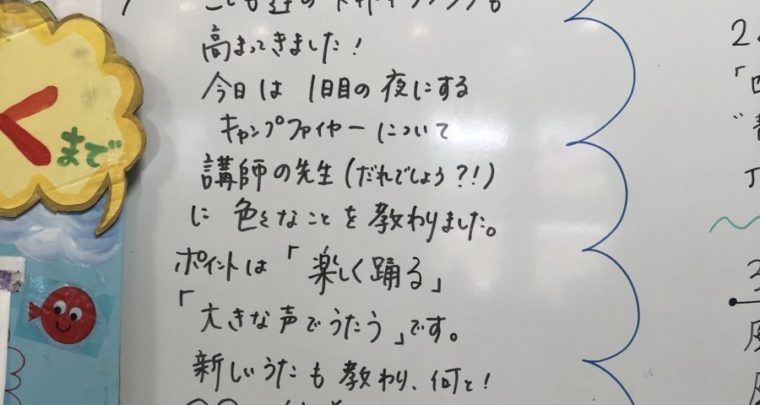 く
まで
高まってきました！
今日は 1日目の夜にする
キャンプファイヤーについて
講師の先生(だれでしょう?!)
に 色々なことを教わりました。
ポイントは「楽しく踊る」
「大きな声でうたう」です。
新しいうたも教わり、何と！
2